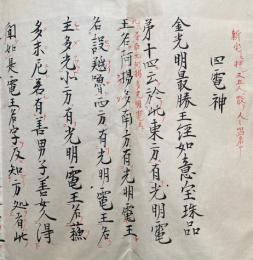 四電神
金光明最勝王経如意宝珠品
第十四云於此東方有光明電
王名阿揭多南方有光明電王
名設羝嚕西方有光明電王名
主多光北方有光明電王名蘇
多末尼若有善男子善女人得
聞如是電王名字及知方処者此